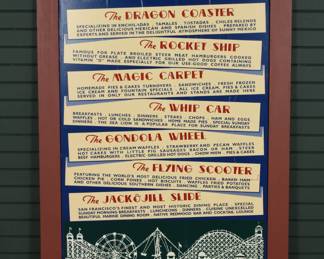 The DRAGON COASTER
SPECIALIZING IN ENCHILADAS TAMALES TOSTADAS CHILES RELENOS
AND OTHER DELICIOUS MEXICAN AND SPANISH DISHES PREPARED BY
EXPERTS AND SERVED IN THE DELIGHTFUL ATMOSPHERE OF SUNNY MEXICO
The ROCKET SHIP
FAMOUS FOR PLATE BROILED STEER MEAT HAMBURGERS COOKED
WITHOUT GREASE AND ELECTRIC GRILLED HOT DOGS CONTAINING
VITAMIN "D" MADE SPECIALLY FOR OUR USE GOOD COFFEE ALWAYS
The MAGIC CARPET
HOMEMADE PIES & CAKES TURNOVERS SANDWICHES FRESH FROZEN
ICE CREAM AND FOUNTAIN SPECIALS ALL ICE CREAM, PIES & CAKES
SERVED IN ONLY OUR RESTAURANTS AND STANDS ARE MADE HERE
The WHIP CAR
BREAKFASTS LUNCHES DINNERS STEAKS CHOPS HAM AND EGGS
WAFFLES HOT OR COLD SANDWICHES HOME MADE PIES SPECIAL SUNDAY
DINNERS THE SEA LION IS A POPULAR PLACE FOR SUNDAY BREAKFASTS
The GONDOLA WHEEL
SPECIALIZING IN CREAM WAFFLES STRAWBERRY AND PECAN WAFFLES
HOT CAKES WITH LITTLE PIG SAUSAGES BACON OR HAM STEER
BEEF HAMBURGERS ELECTRIC GRILLED HOT DOGS CHOW MEIN PIES & CAKES
The FLYING SCOOTER
FEATURING THE WORLD'S MOST DELICIOUS FRIED CHICKEN BAKED HAM
CHICKEN PIE CORN PONES HOT BISCUITS WAFFLES FRIED POTATOES
AND OTHER DELICIOUS SOUTHERN DISHES DANCING PARTIES & BANQUETS
The JACK & JILL SLIDE
SAN FRANCISCO'S FINEST AND MOST HISTORIC DINING PLACE SPECIAL
SUNDAY MORNING BREAKFASTS LUNCHEONS DINNERS CUISINE UNEXCELLED
BEAUTIFUL MARINE DINING ROOM NATIVE REDWOOD BAR AND COCKTAIL LOUNGE